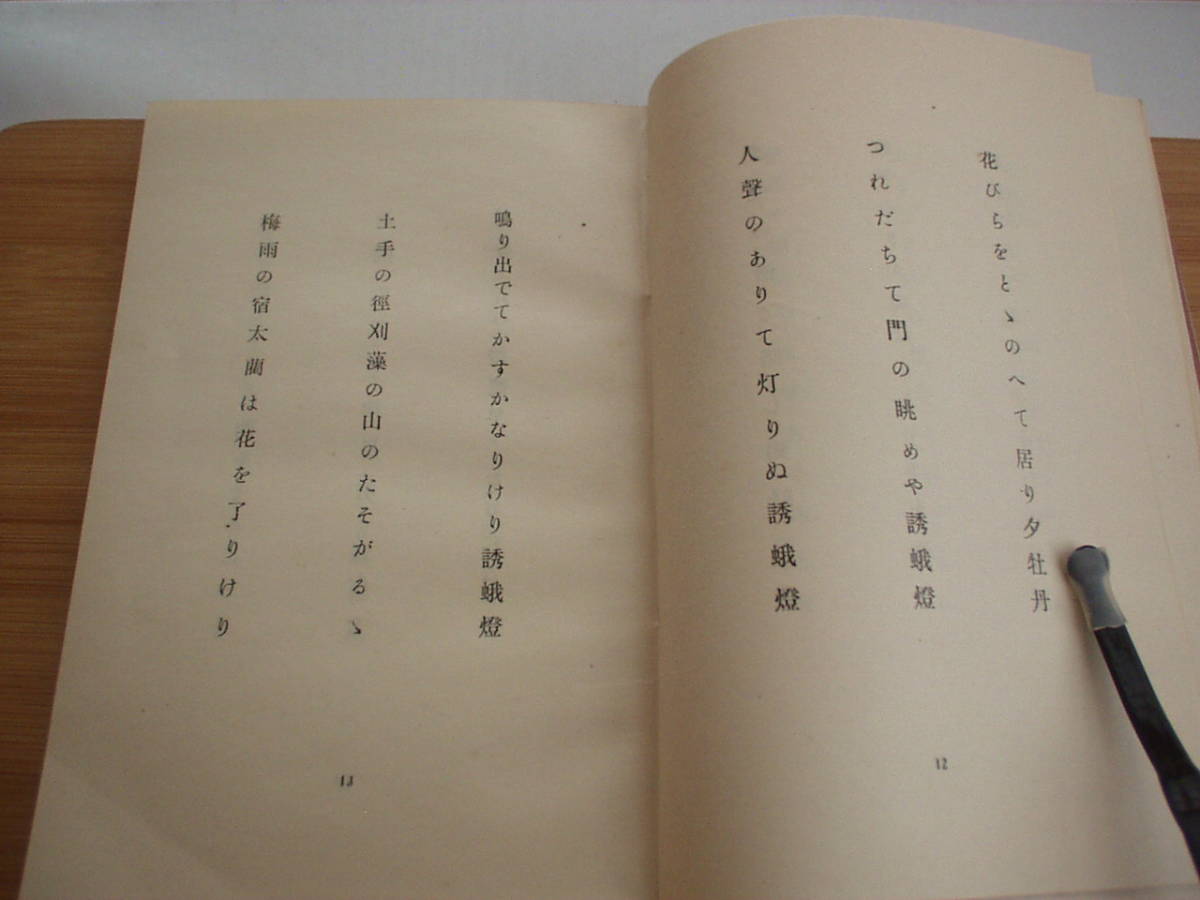 花びらをとゝのへて居り夕牡丹
つれだちて門の眺めや誘蛾燈
人聲のありて灯りぬ誘蛾燈
12
鳴り出でてかすかなりけり誘蛾燈
土手の徑刈藻の山のたそがるゝ
梅雨の宿太藺は花を了りけり
13